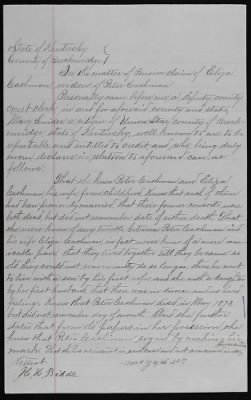 State of Kentucky
County of Breckinridge
In the matter of Pension claim of Eliza
Cashman widow of Peter Cashman
Personally came before me, a deputy county
court clerk, in and for aforesaid county and state,
Mary a citizen of Union Star county of Breck-
inridge, state of Kentucky, well known to me to be
reputable and entitled to credit and who, being duly
sworn, declares in relation to aforesaid case as
follows:
That she knew Peter Cashman and Eliza
Cashman, his wife, from childhood. Knew that each of them
had been previously married, that their former consorts was
both dead but did not remember date of either death. That
she never knew of any trouble between Peter Cashman and
his wife Eliza Cashman in fact never knew of a more am-
icable pair that they lived together till they became as
old they could not
by her first husband, that there was no divorce
feelings. Knew that Peter Cashman died in May 1893
but did not remember day of month. And she further
states that from old papers in her possession she
knew that Peter Cashman signed by making his
mark. That she has no interest in said case and not concerned in
Attest
H. H. Biddle